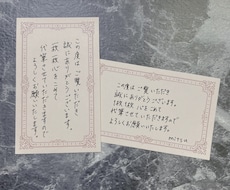 この度はご覧いただき
誠にありがとうございます。
一枚一枚心をこめて
代筆させていただきますので
よろしくお願いいたします。
この度はご覧いただき
誠にありがとうございます。
1枚1枚心をこめて
代筆させていただきますので
よろしくお願いいたします。